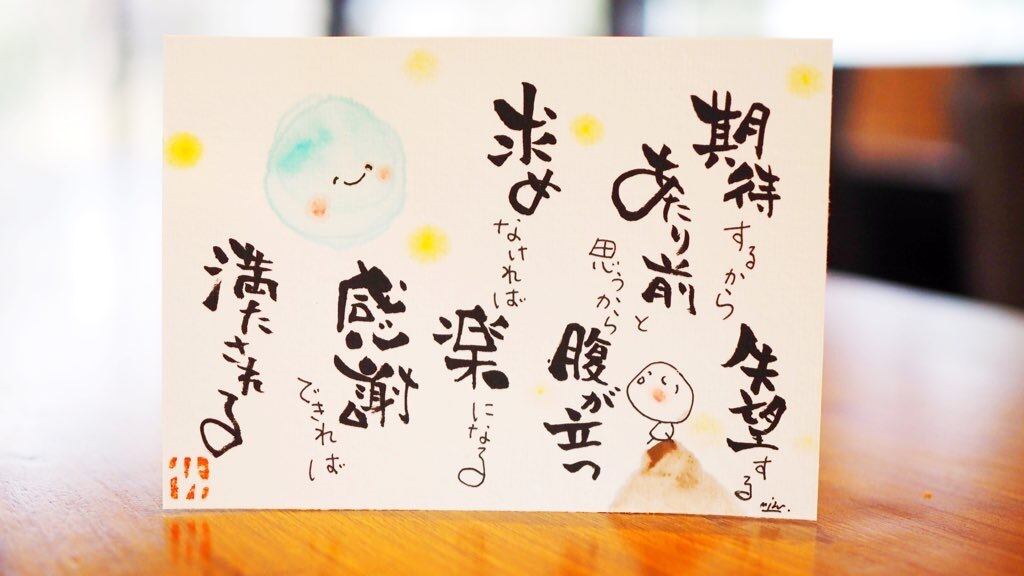 期待するから
失望する
あたり前と
思うから
腹が立つ
求めなければ
楽になる
感謝できれば
満たされる